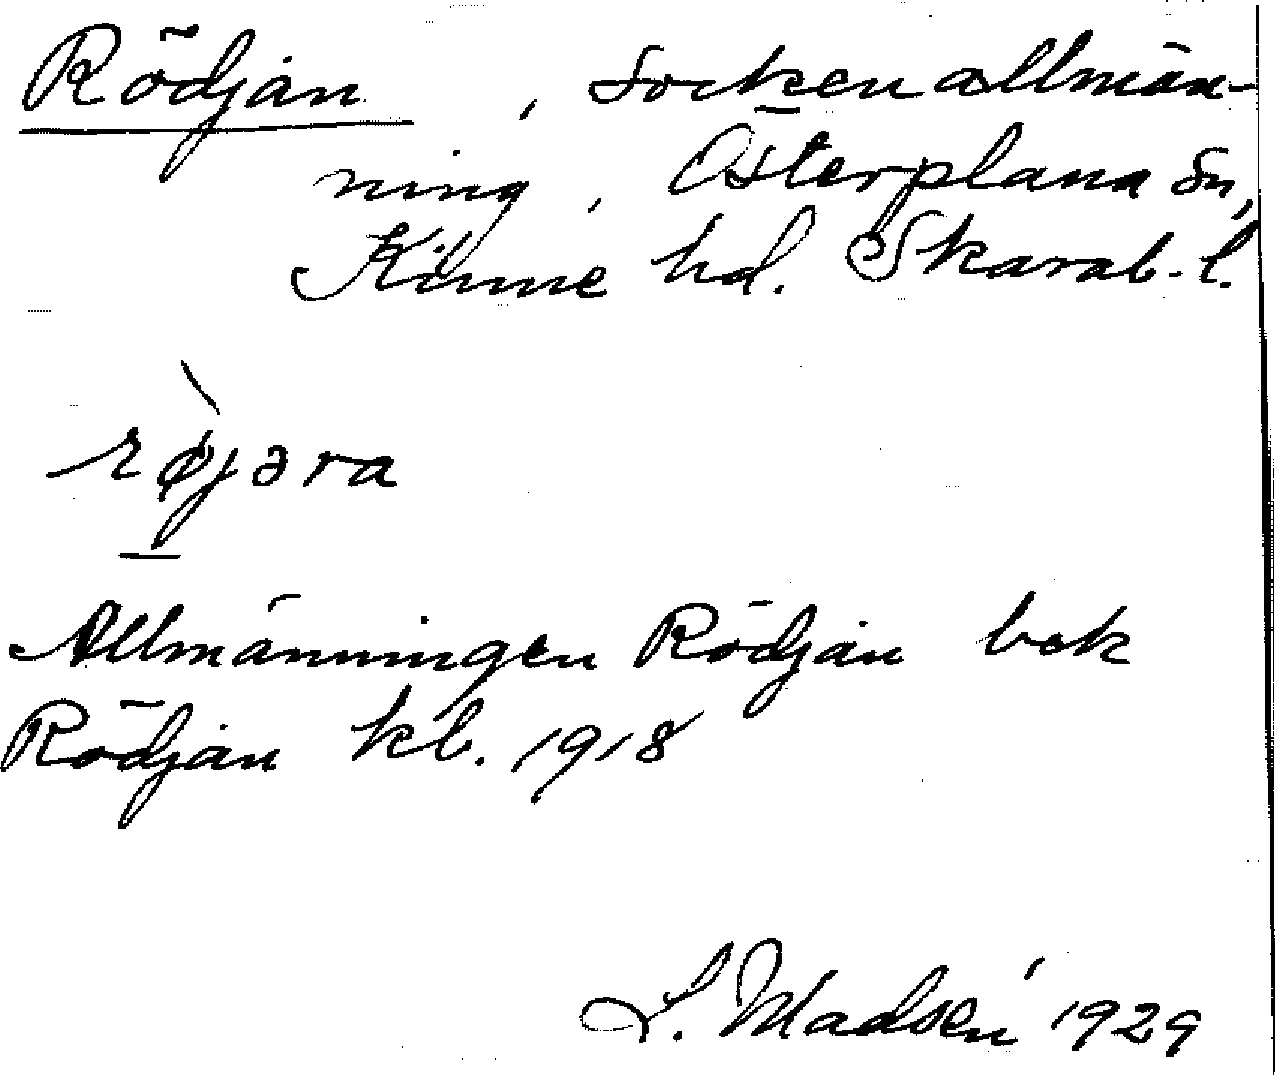 Rödjan, sockenallmän-
ning, Österplana sn,
Kinne hd. Skarab. l.
rø̀jəra
Allmänningen Rödjan bek
Rödjan kb. 1918
L. Madsén 1929